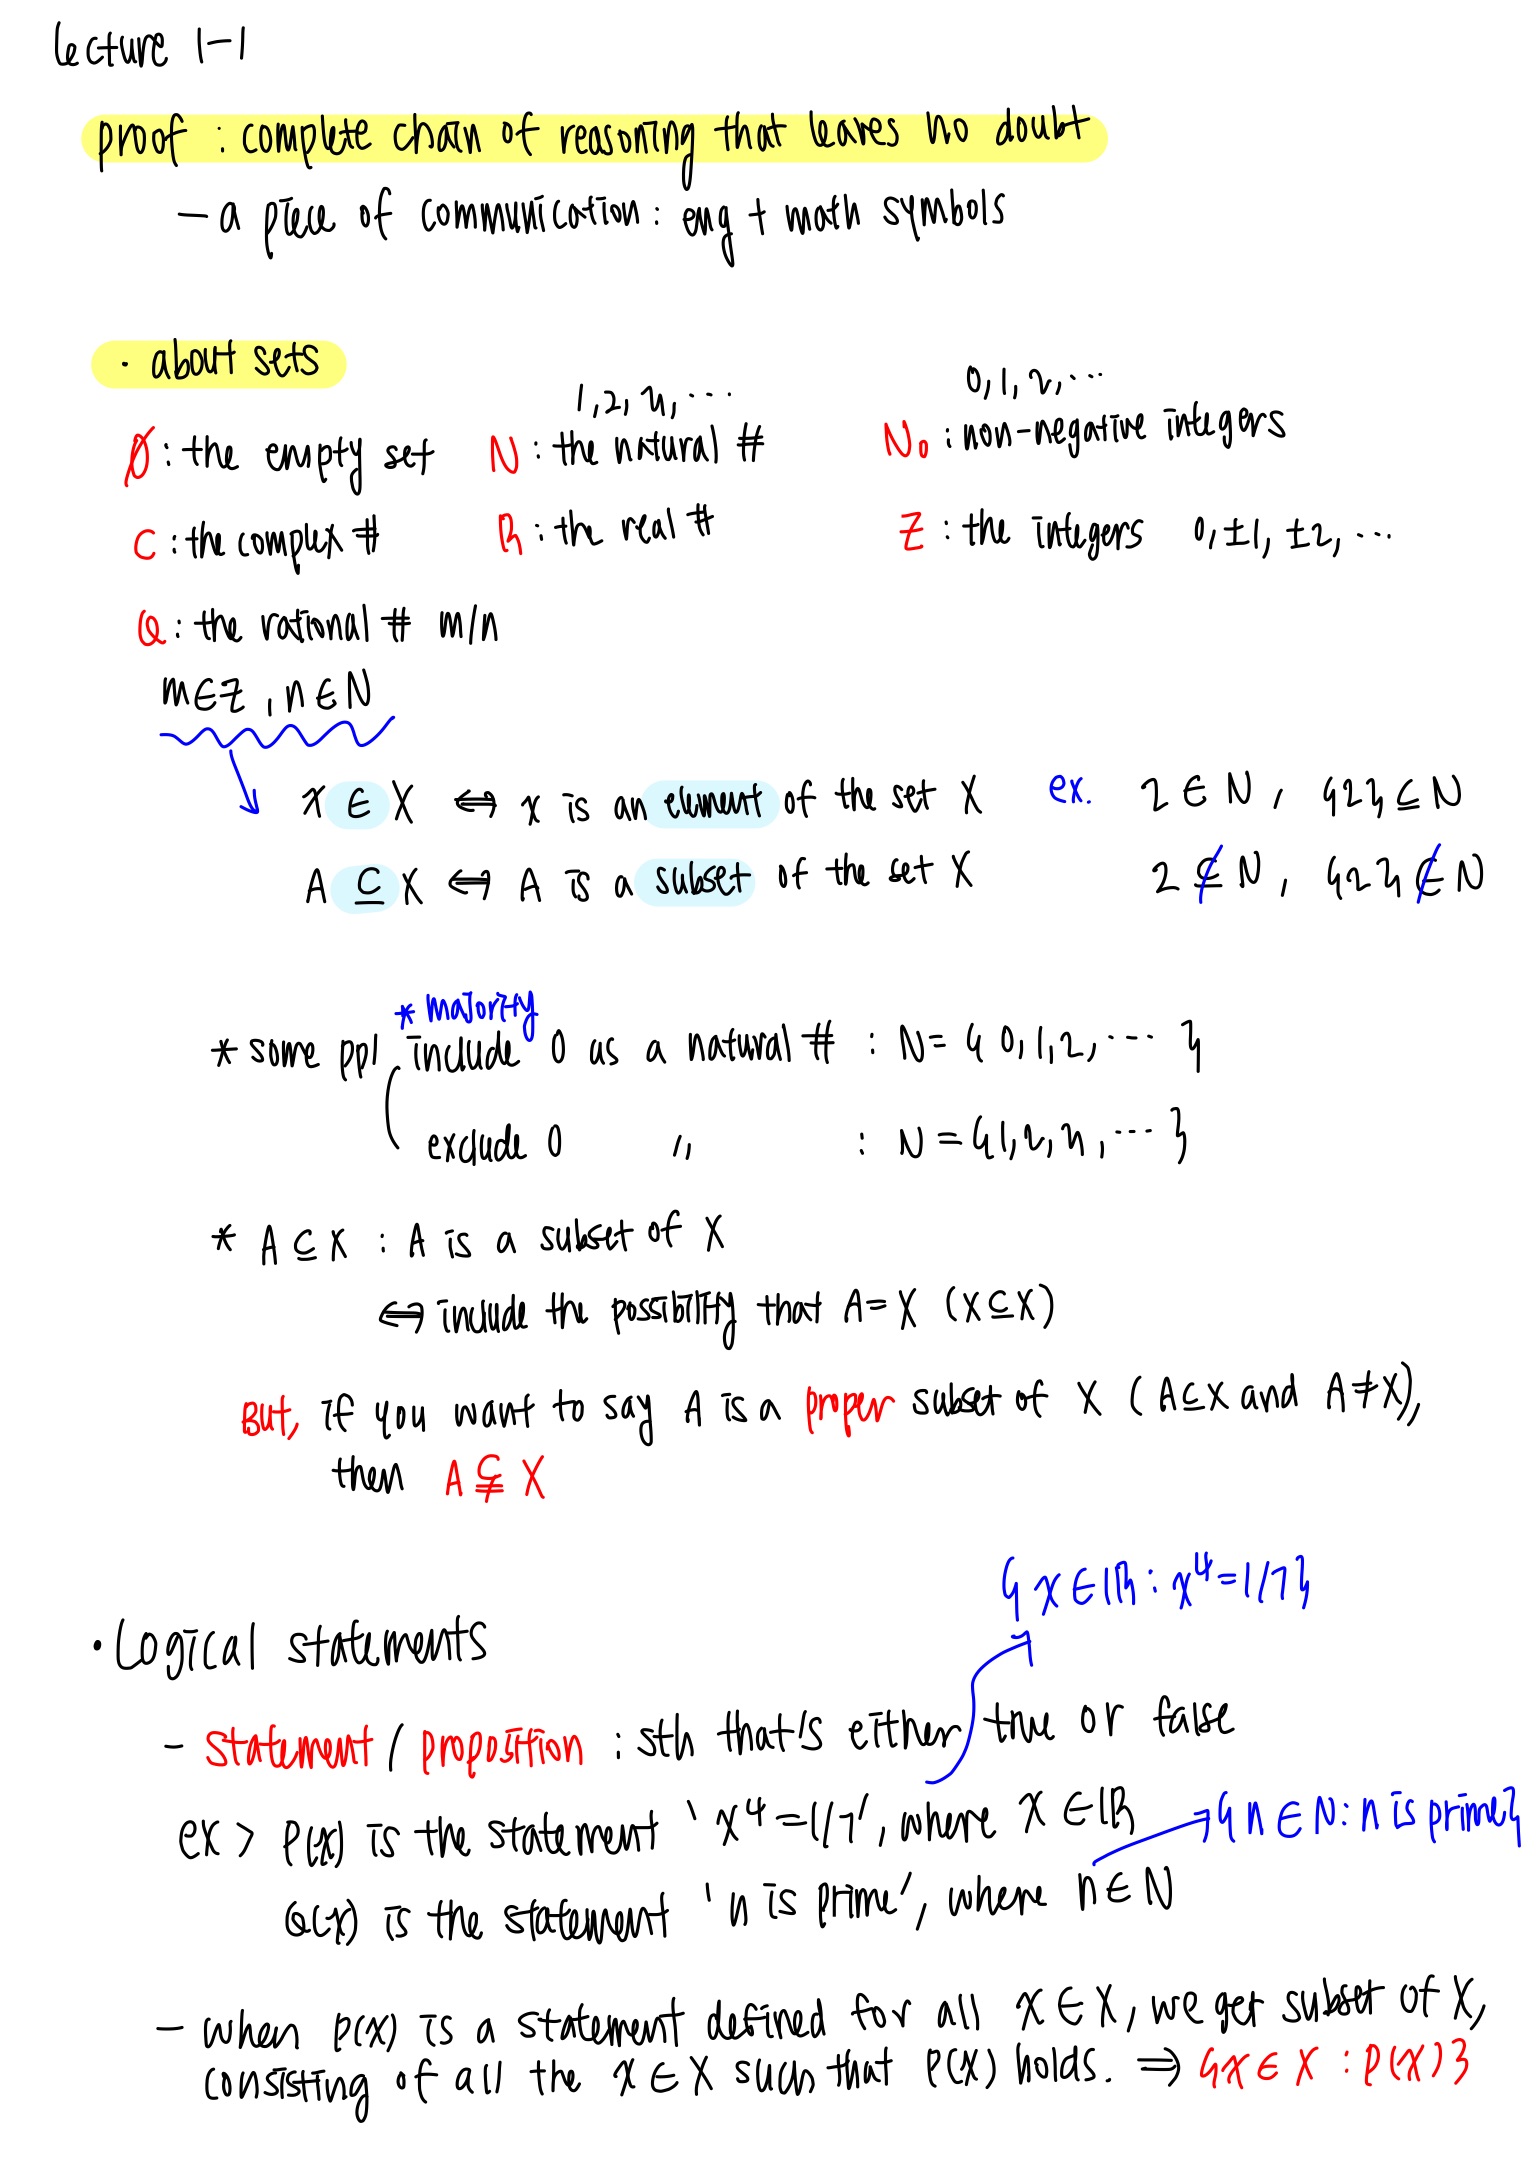 lecture 1-1
proof : complete chain of reasoning that leaves no doubt
— a piece of communication : eng + math symbols
· about sets
1, 2, 3, ···
0, 1, 2, ···
∅ : the empty set N : the natural # N₀ : non-negative integers
C : the complex # R : the real # Z : the integers 0, ±1, ±2, ···
Q : the rational # m/n
m∈Z , n∈N
x ∈ X ⟺ x is an element of the set X ex. 2 ∈ N , {2} ⊆ N
A ⊆ X ⟺ A is a subset of the set X 2 ⊈ N , {2} ∉ N
* majority
* some ppl include 0 as a natural # : N = { 0, 1, 2, ··· }
exclude 0 〃 : N = {1, 2, 3, ··· }
* A ⊆ X : A is a subset of X
⟺ include the possibility that A = X (X⊆X)
But, if you want to say A is a proper subset of X ( A⊆X and A≠X),
then A ⊊ X
{ x ∈ ℝ : x⁴ = 1/7 }
· Logical statements
- statement / proposition : sth that's either true or false
ex > P(x) is the statement 'x⁴ = 1/7', where x ∈ ℝ
{ n ∈ N : n is prime }
Q(x) is the statement 'n is prime', where n ∈ N
- when P(x) is a statement defined for all x ∈ X, we get subset of X,
consisting of all the x ∈ X such that P(x) holds. ⟹ {x ∈ X : P(x) }